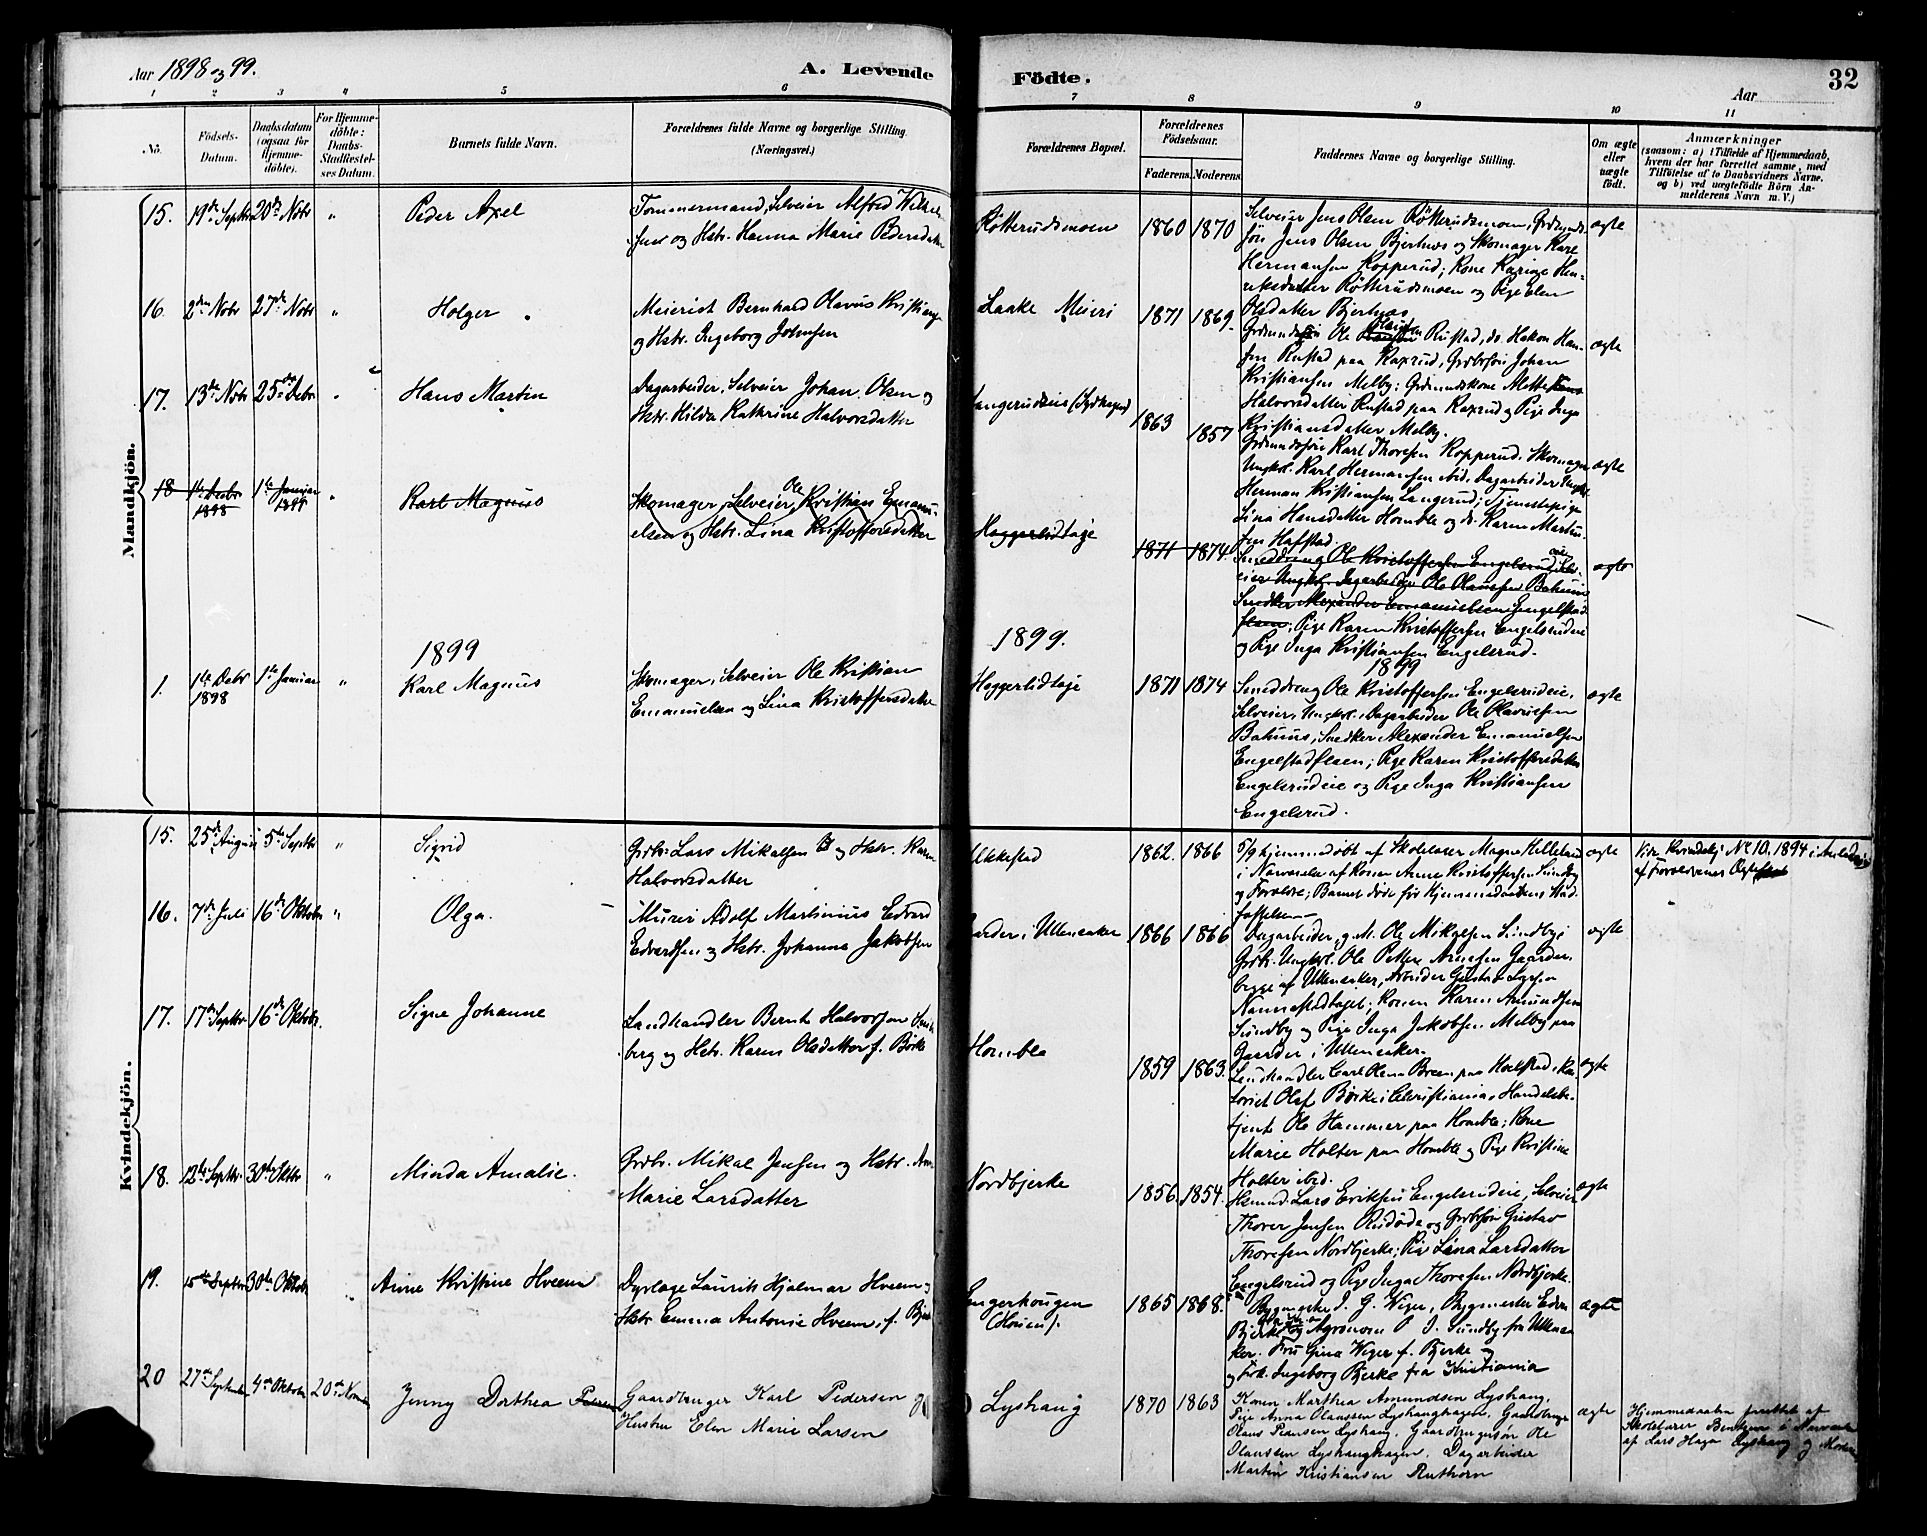 Aar 1898 og 99.
A. Levende
Födte.
Aar
32
1 2 3 4 5 6 7 8 9 10 11
No.
Födsels-
Datum.
Daabsdatum
(ogsaa for
Hjemme-
døbte).
For Hjemme-
døbte:
Daabs-
Stadfæstel-
ses Datum.
Barnets fulde Navn.
Forældrenes fulde Navne og borgerlige Stilling.
(Næringsvei.)
Forældrenes Bopæl.
Forældrenes
Födselsaar.
Faderens. Moderens.
Faddernes Navne og borgerlige Stilling.
Om ægte
eller
uægte
født.
Anmærkninger
(saasom: a) i Tilfælde af Hjemmedaab,
hvem der har forrettet samme, med
Tilføielse af to Daabsvidners Navne,
og b) ved uægtefødte Børn An-
melderens Navn m. V.)
Mandkjön.
15. 19de Septbr 20de Novbr " Peder Axel
Tømmermand, Selveier Alfred Wilhelm-
sen og Hstr. Hanna Marie Pedersdatter
Røtterudsmoen 1860 1870
Selveier Jens Olsen Røtterudsmoen, Grdmands-
søn Jens Olsen Bjerknes og Skomager Kare
Hermansen Kopperud; Kone Karine Hen-
riksdatter Røtterudsmoen og Pige Elen
Olsdatter Bjerknes
ægte
16. 2den Novbr 27de Novbr " Holger
Meierist Bernhard Olavus Kristians
og Hstr. Ingeborg Johnsen
Laake Meieri 1871 1869.
Grdmandssøn Ole Rustad, do. Hakon Han-
sen Rustad paa Raxrud, Grdbrsøn Johan
Kristiansen Melby; Grdmandskone Mette
Halvorsdatter Rustad paa Raxrud og Pige Inga
Kristiansdatter Melby.
ægte
17. 13de Novbr 25de Decbr " Hans Martin
Dagarbeider, Selveier Johan Olsen og
Hstr. Hilda Kathrine Halvorsdatter
Langerudseie 1863 1857
Grdmandssøn Karl Thoresen Kopperud. Skomager
Ungkrl. Karl Hermansen ibid. Dagarbeider Ungkl.
Herman Kristiansen Langerud; Tjenestepige
Lina Hansdatter Homble og do. Karen Martin-
sen Hafstad.
ægte
18 1ste Decbr 1898 1ste Januar 1899 " Karl Magnus
Skomager, Selveier, Ole Kristian Emanu-
elsen og Hstr. Lina Kristoffersdatter
Heggerlidtage 1871 1874
Smeddreng Ole Kristoffersen Engelsrudeie, Sel-
eier Ungkrl. Dagarbeider Ole Olavesen Bahuus
Snedker Alexander Emanuelsen Engelstad-
flaen; Pige Karen Kristoffersen Engelsrudeie
og Pige Inga Kristiansen Engelsrud.
ægte
1899
1899.
1899
1. 1ste Decbr 1898 1ste Januar " Karl Magnus
Skomager, Selveier Ole Kristian
Emanuelsen og Lina Kristoffersdatter
Heggerlidtage 1871 1874
Smeddreng Ole Kristoffersen Engelsrudeie,
Selveier, Ungkrl. Dagarbeider Ole Olavesen
Bahuus, Snedker Alexander Emanuelsen
Engelstadflaen; Pige Karen Kristoffersdatter
Engelsrudeie og Pige Inga Kristiansen
Engelsrud.
ægte
Kvindekjön.
15. 25de August 5te Septbr " Sigrid
Grdbr. Lars Mikalsen og Hstr. Karen
Halvorsdatter
Ukkestad 1862. 1866
5/9 hjemmedøbt af Skolelærer Magne Helleland
i Nærværelse af Konen Anne Kristoffersen Sundby
og Forældre; Barnet døde før Hjemmedaabens Stad-
fæstelse
ægte
Vide Kvindekj. No 10. 1894 i Anledning
af Forældrenes Ægteskab
16. 7de Juli 16de Oktober " Olga.
Murer Adolf Martinius Edvard
Edvardsen og Hstr. Johanna Jakobsen
Gaarder i Ullensaker 1866 1866
Dagarbeider, g. M. Ole Mikalsen Sundby;
Grdbr. Ungkrl. Ole Petter Arnesen Gaarder,
begge af Ullensaker, Arbeider Gustav Larsen
Nannestadtaget; Konen Karen Amundsen
Sundby og Pige Inga Jakobsen Melby paa
Gaarder i Ullensaker.
ægte
17. 17de Septbr. 16de Oktobr. Signe Johanne
Landhandler Bernt Halvorsen Sand-
berg og Hstr. Karen Olsdatter f. Børke
Homble 1859 1863.
Landhandler Carl Olsen Breen paa Hoelstad, Kon-
torist Olaf Børke i Christiania, Handelsbe-
tjent Ole Hammer paa Homble; Kone
Marie Holter paa Homble og Pige Kristine
Holter ibid.
ægte
18. 12te Septbr. 30te Oktbr " Minda Amalie.
Grdbr. Mikal Jensen og Hstr. Anne
Marie Larsdatter
Nordbjerke 1856. 1854.
Husmd. Lars Eriksen Engelsrudeie, Selveier
Thorer Jensen Rudøde og Grdbrsøn Gustav
Thoresen Nordbjerke; Pige Lina Larsdatter
Engelsrud og Pige Inga Thoresen Nordbjerke.
ægte
19. 15de Septbr 30te Oktober " Anne Kristine Hveem
Dyrlæge Laurits Hjalmar Hveem og
Hstr. Emma Antonie Hveem, f. Bjerke
Engerhougen
(Mouen). 1865 1868.
Bygmester J. G. Weger, Bygmester Edv.
Bjerke og Agronom P. J. Sundby fra Ullensa-
ker. Fru Gina Weger f. Bjerke og
Frk. Ingeborg Bjerke fra Kristiania
ægte
20 27de September 4de Oktober 20de Novbr Jenny Dorthea
Gaardbruger Karl Pedersen og
Hustru Elen Marie Larsen
Lyshaug 1870 1863
Konen Marthea Amundsen Lyshaug,
Pige Anna Olaussen Lyshaughagen, Gaardbruger
Olaus Peansen Lyshaug, Gaardbrugersøn Ole
Olaussen Lyshaughagen. Dagarbeider
Martin Kristiansen Ruthorn
ægte
Hjemmedaaben forrettet af
Skolelærer Bentzen i Nærvær
af Lars Haga Lyshaug og Moderen